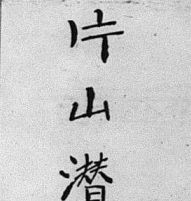 片山潜